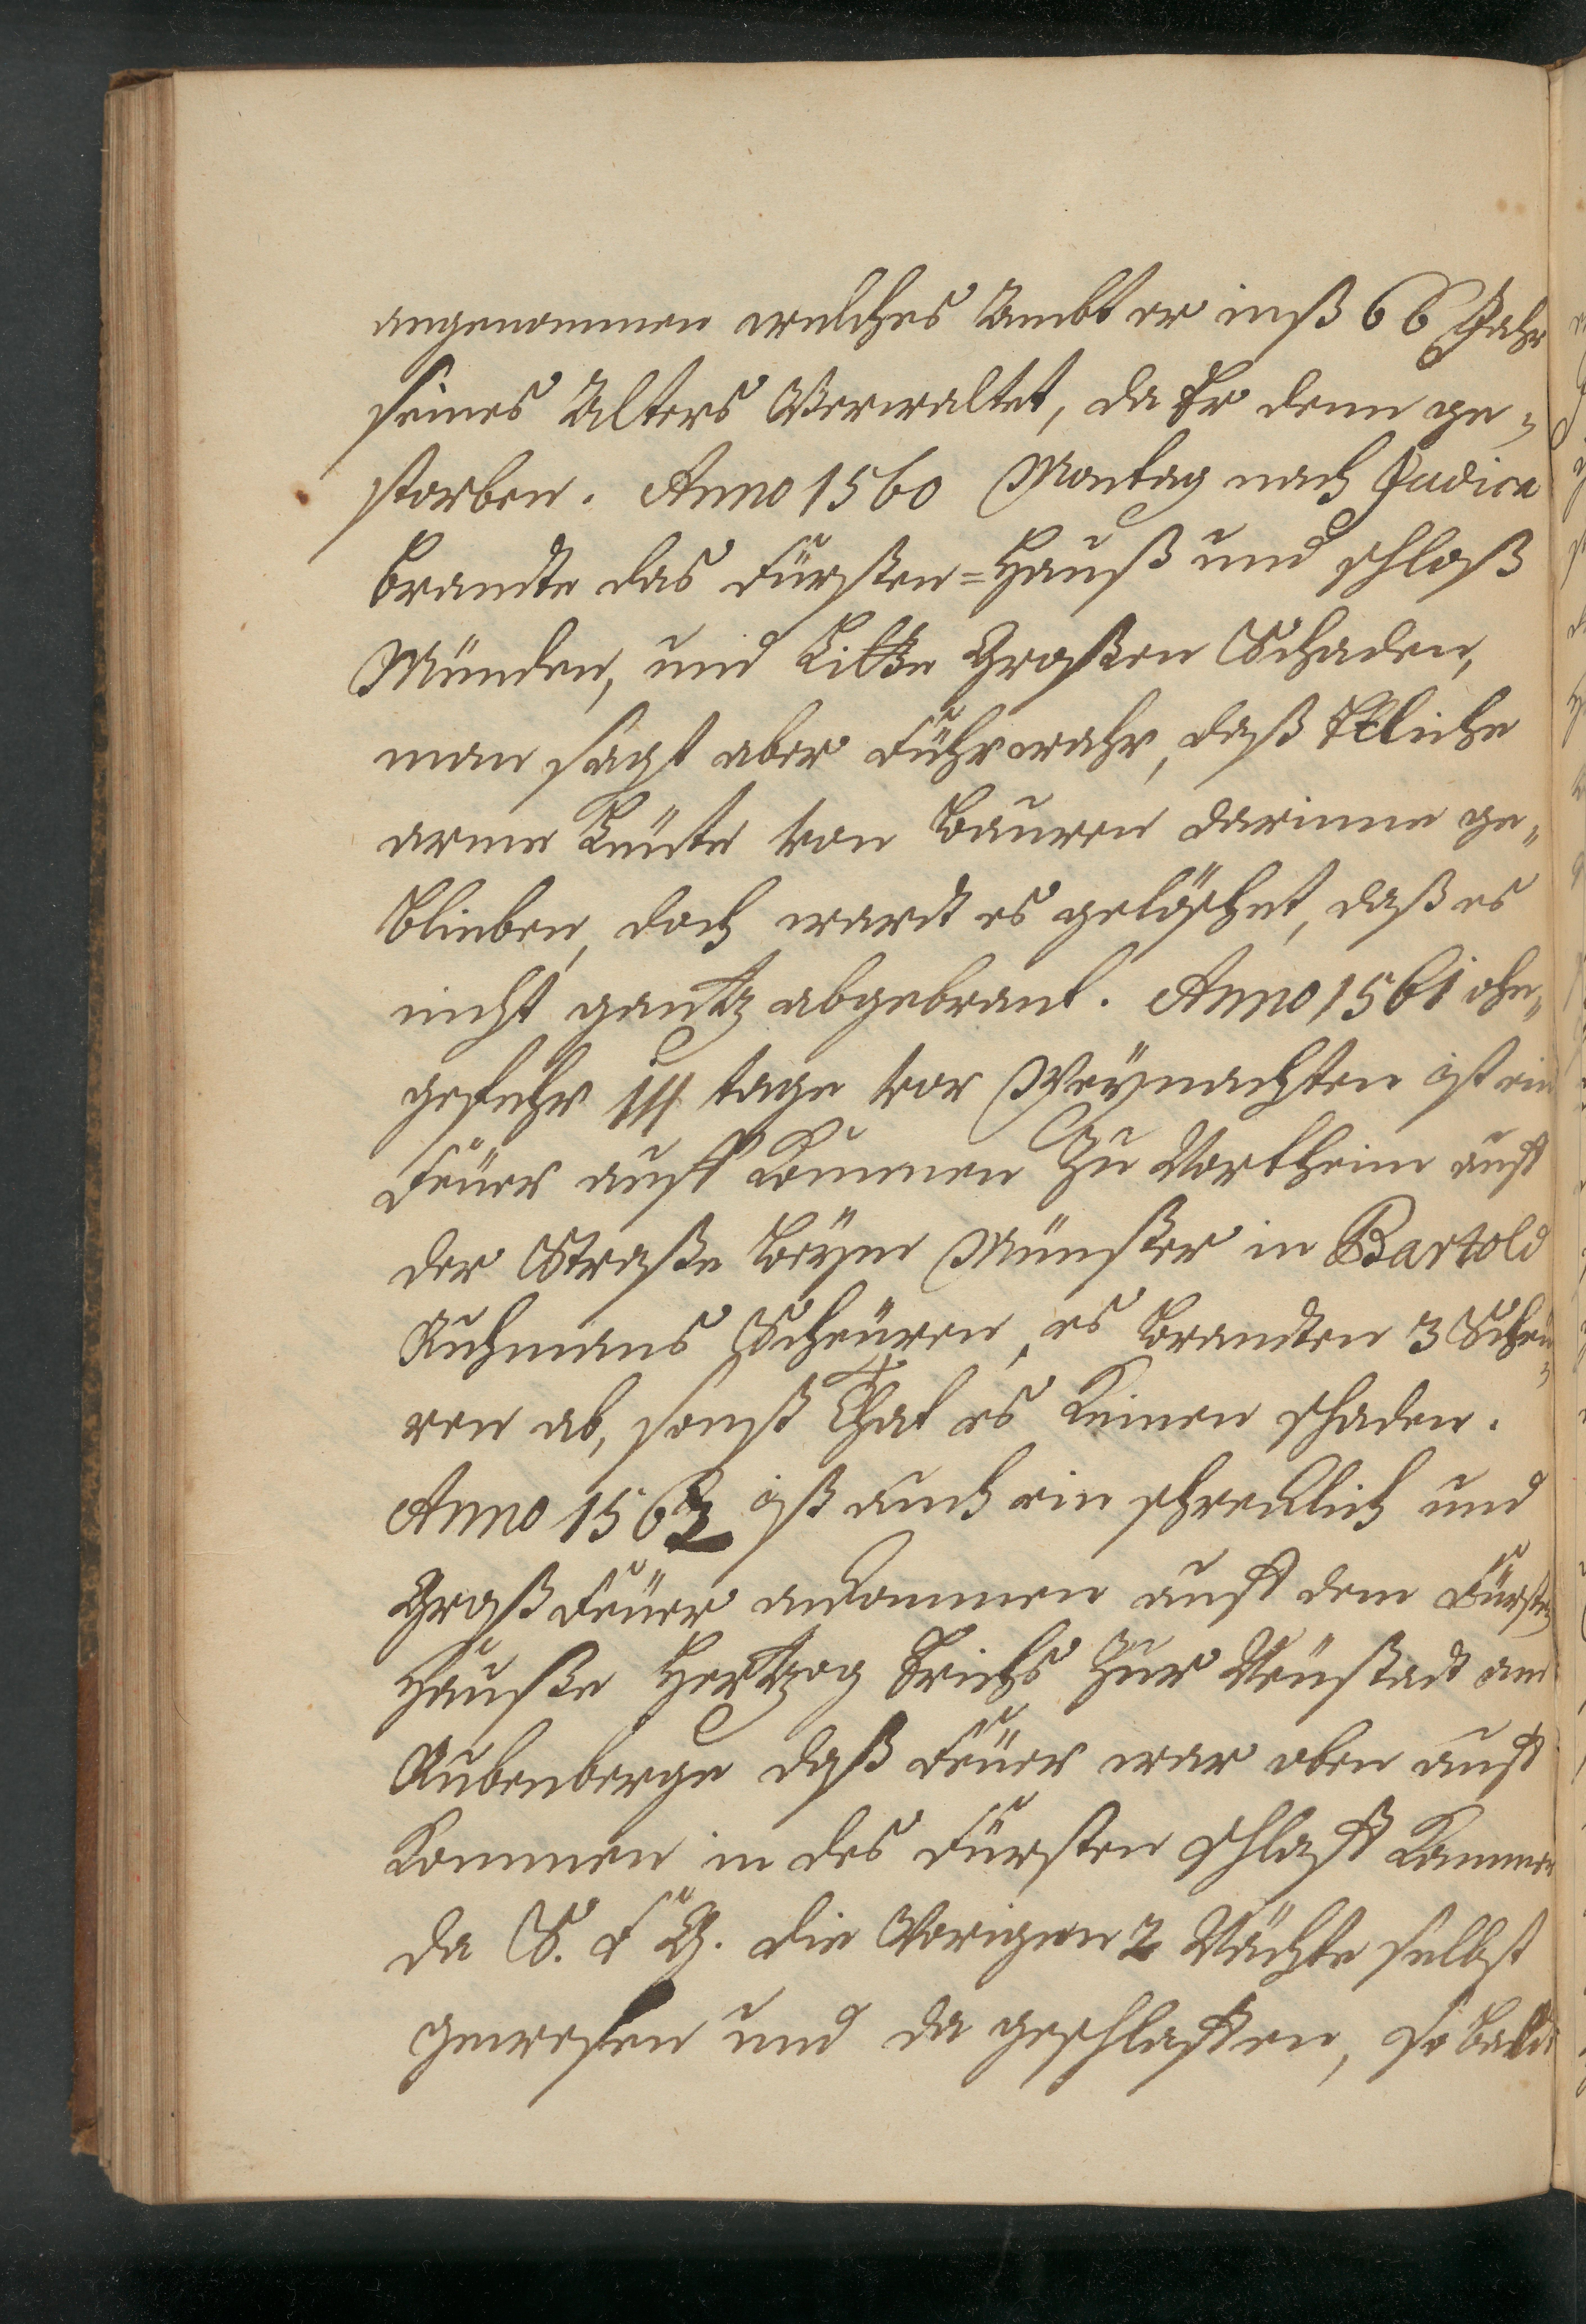 angenommen welches Ambt er inß 66 Jahr
seines Alters Verwaltet, da Er denn ge-
storben. Anno 1560 Montag nach Judica
brandte das Fürsten=Hauß und schloß
Münden, und Litte Großen Schaden,
man sagt aber Führwahr, daß Etliche
arme Leute von Bauren darinne ge-
blieben, doch wardt es gelöschet, daß es
nicht gantz abgebrant. Anno 1561 ohn-
gefehr 111 tage vor Weynachten ist ein
Feüer auff kommen Zu Northeim auff
der Straße beym Münster in Bartold
Ruhmans Scheüren, es brandten 3 Scheü-
ren ab, sonst That es keinen schaden.
Anno 1563 ist auch ein schrecklich und
Groß Feüer ankommen auff dem Fürsten
Hauße Hertzog Erichs Zur Neüstadt am
Rubenberge daß Feüer war oben auff
kommen in des Fürsten schlaff Kammer
da S. F G. die Vorigen 2 Nächte selbst
gewesen und da geschlaffen, so bald